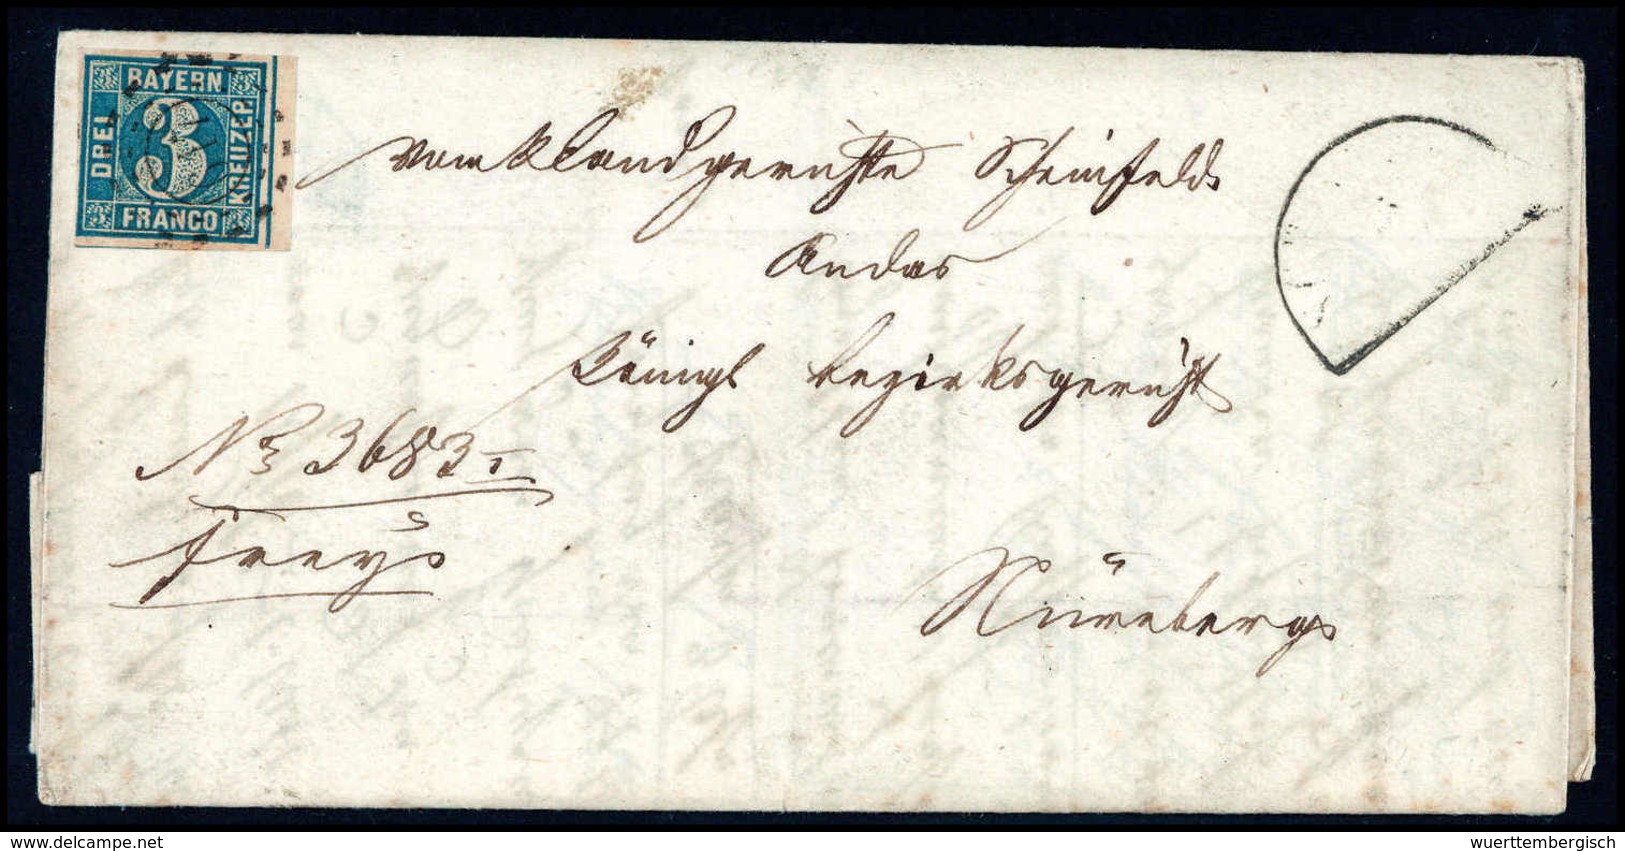 BAYERN
DREI
3
KREUZER
FRANCO
vom k Landgerichte Scheinfeld
An das
Königl Bezirksgericht
No 3683
Nürnberg
delcampe.net
wuerttembergisch